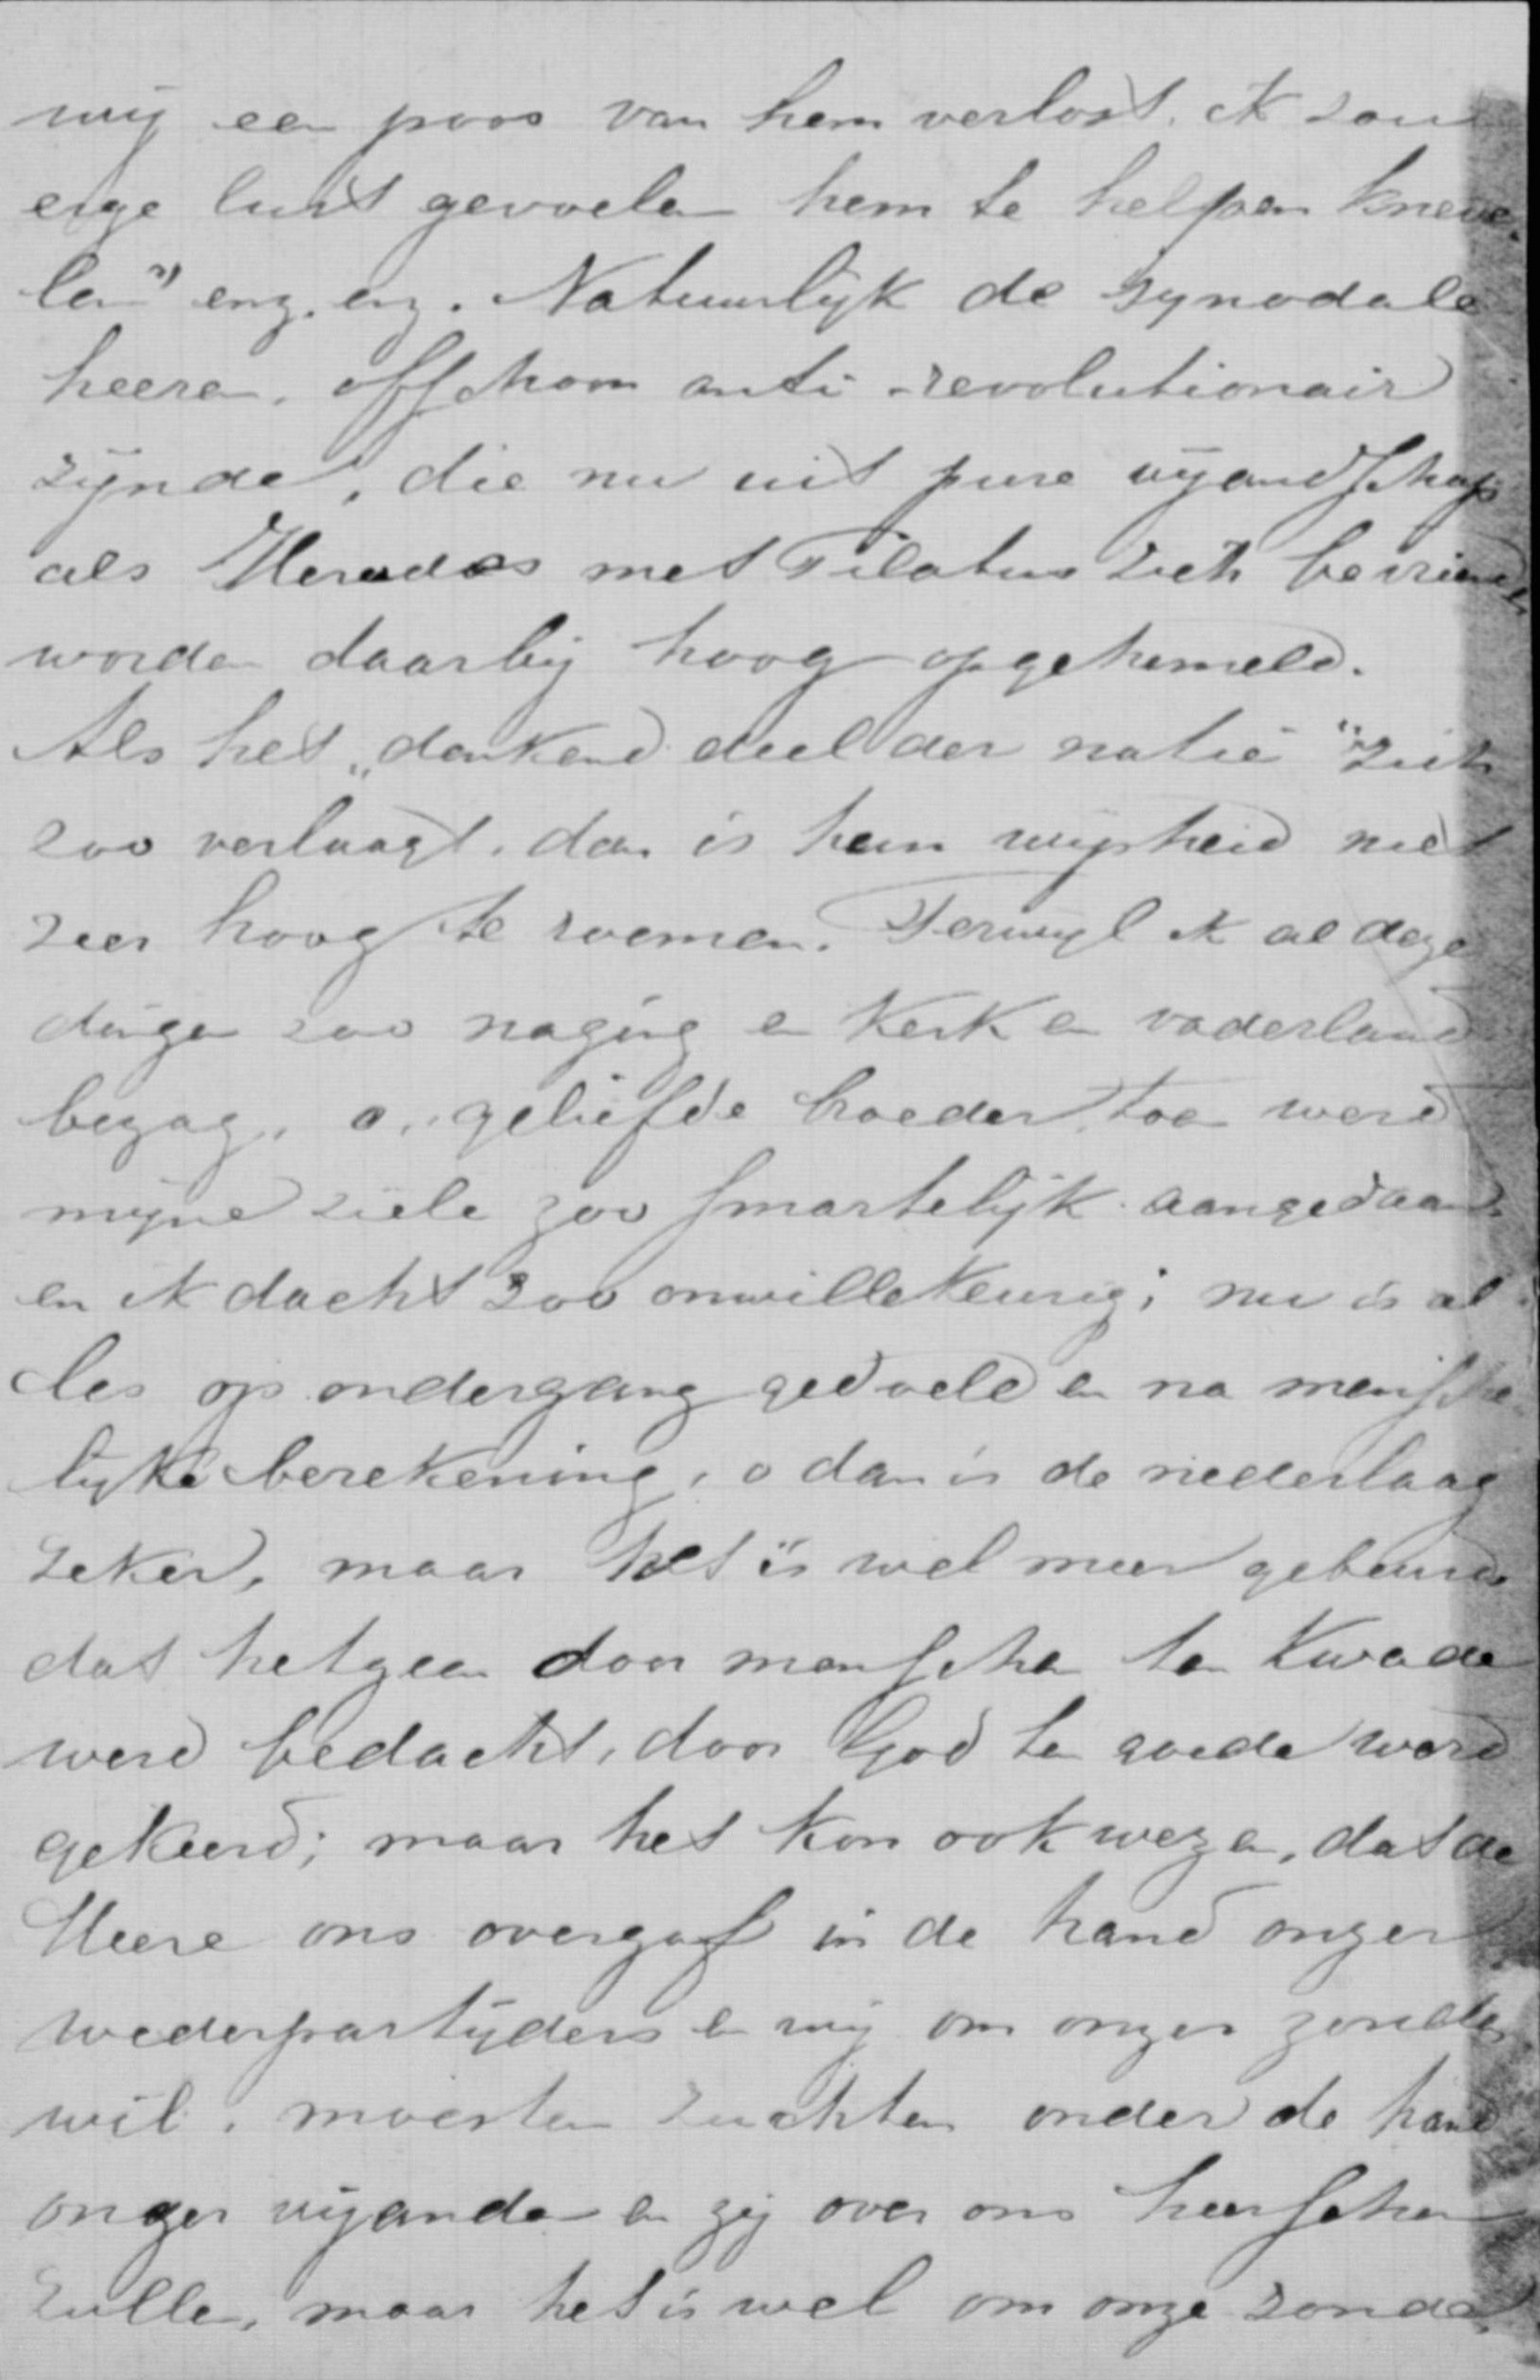 wij een poos van hem verlost. ik zou
erge lust gevoelen hem te helpen kneve-
len" enz. enz. Natuurlijk de synodale
heeren, offchoon anti-revolutionair
zijnde, die nu uit pure vijandschap
als Herodes met Pilatus zich bevriend
worden daarbij hoog opgehemeld.
Als het „denkend deel der natie" zich
zoo verlaagt, dan is hun wijsheid niet
zeer hoog te roemen. Terwijl ik al deze
dingen zoo naging en Kerk en vaderland
bezag, o, geliefde broeder, toen werd
mijne ziele zoo smartelijk aangedaan
en ik dacht zoo onwillekeurig; nu is al
les op ondergang gedoeld en na menfche-
lijke berekening, o dan is de nederlaag
zeker, maar het is wel meer gebeurd
dat hetgeen door menschen ten Kwade
werd bedacht, door God ten goede werd
gekeerd; maar het kon ook wezen, dat de
Heere ons overgaf in de hand onzer
wederpartijders en wij om onzer zonden
wil, moesten zuchten onder de hand
onzer vijanden en zij over ons heerschen
zullen, maar het is wel om onze zonden,